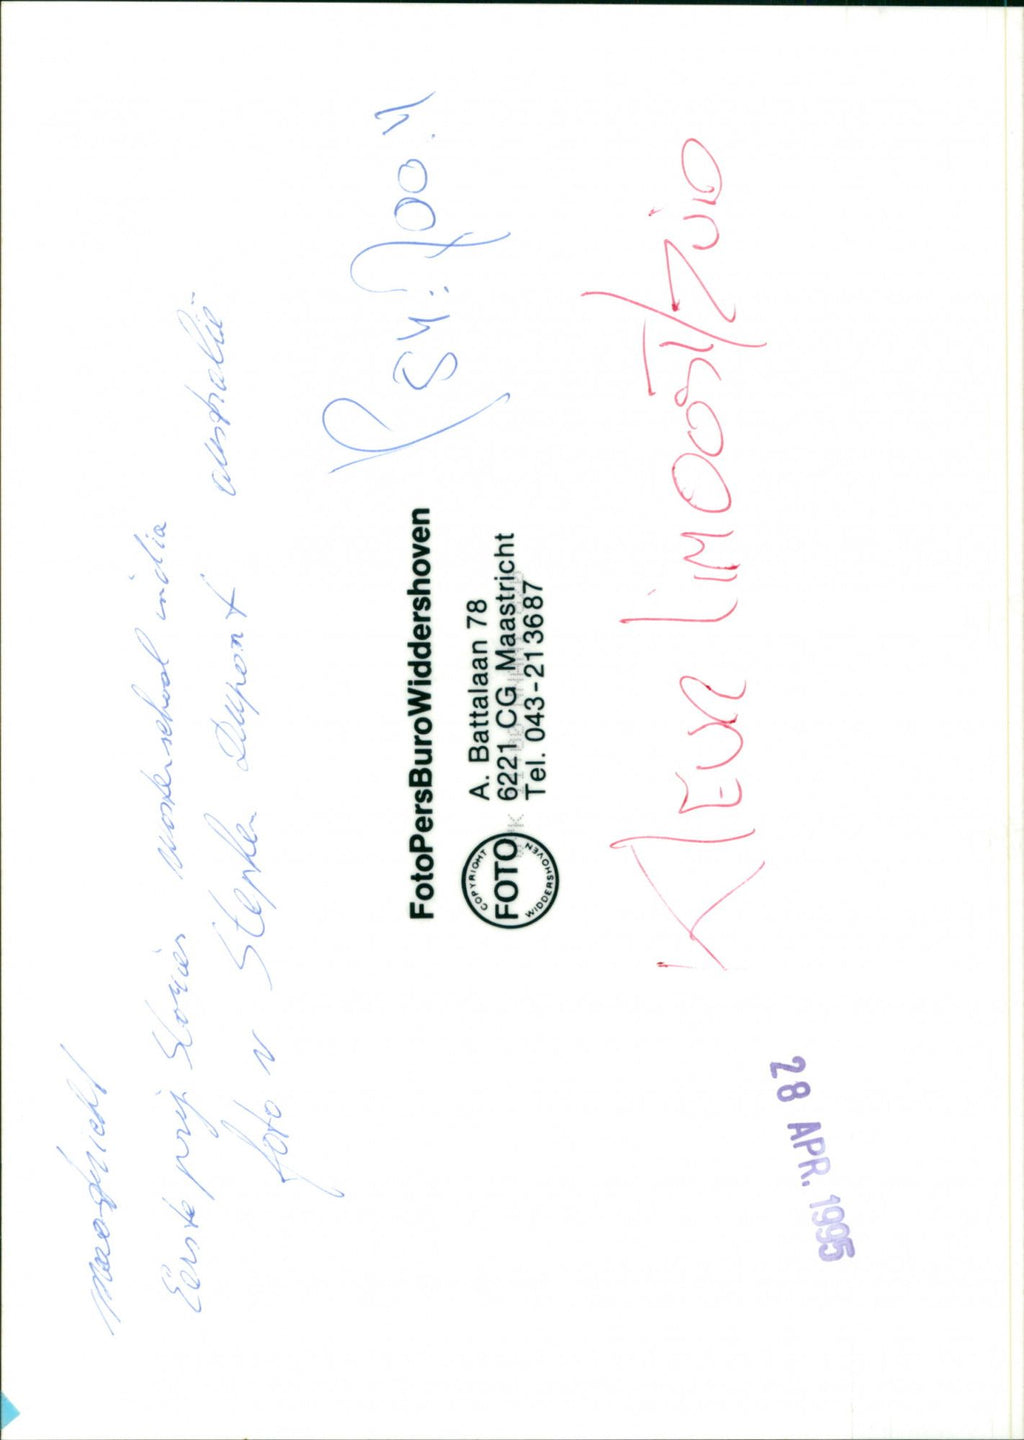 Maastricht
Eerste prijs Stories worstelschool india
foto v Stephen Dupont australië
FotoPersBuroWiddershoven
COPYRIGHT
FOTO
WIDDERSHOVEN
A. Battalaan 78
6221 CG Maastricht
Tel. 043-213687
KLEUR LIMOOST/ZUID
28 APR. 1995